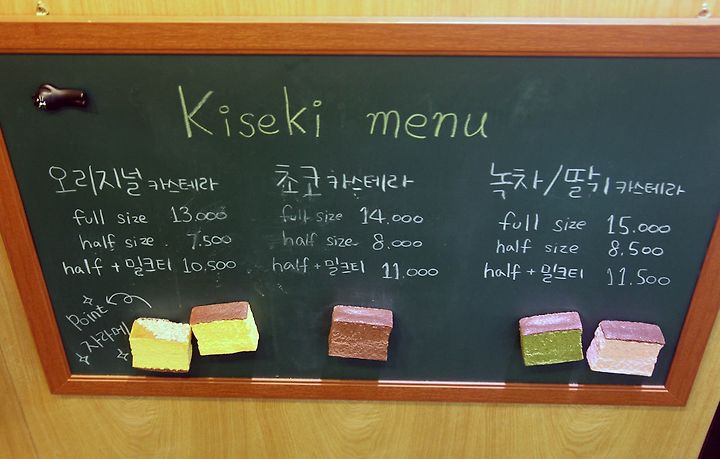 Kiseki menu
오리지널 카스테라
full size 13.000
half size 7.500
half + 밀크티 10.500
Point
자라메
초코 카스테라
full size 14.000
half size 8.000
half + 밀크티 11.000
녹차/딸기 카스테라
full size 15.000
half size 8.500
half + 밀크티 11.500